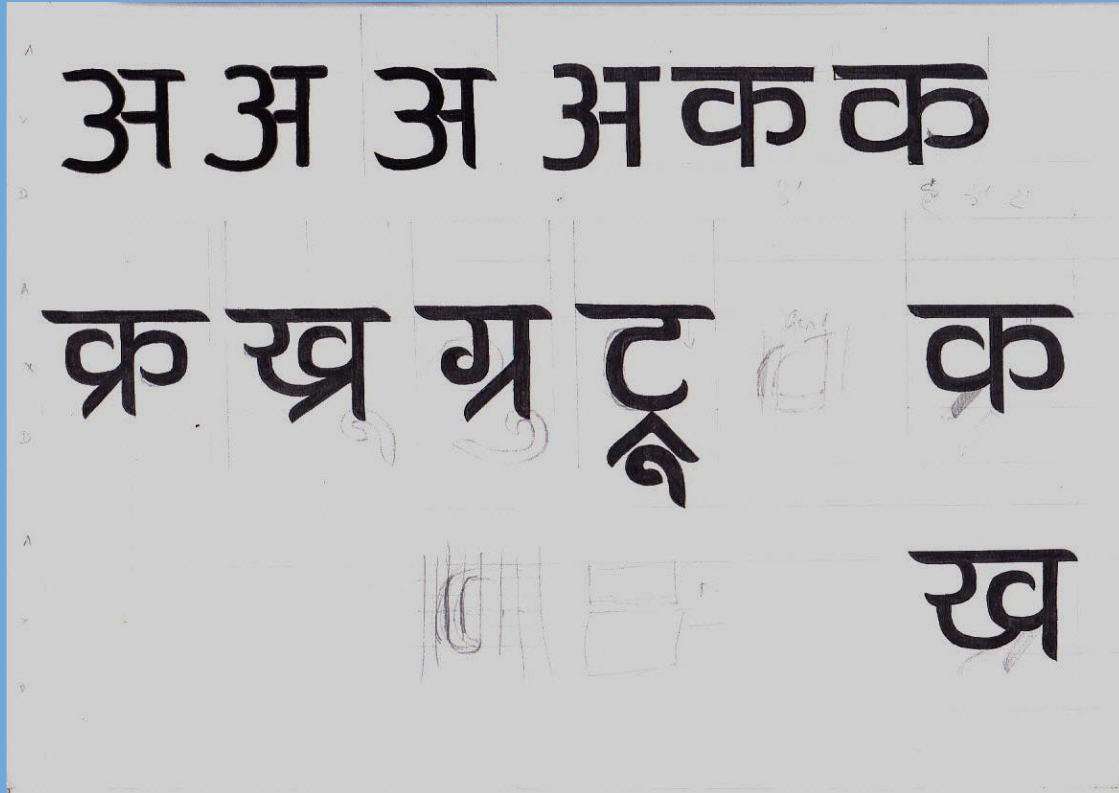 अ अ अ अ क क
क्र ख्र ग्र ट्रू क
ख